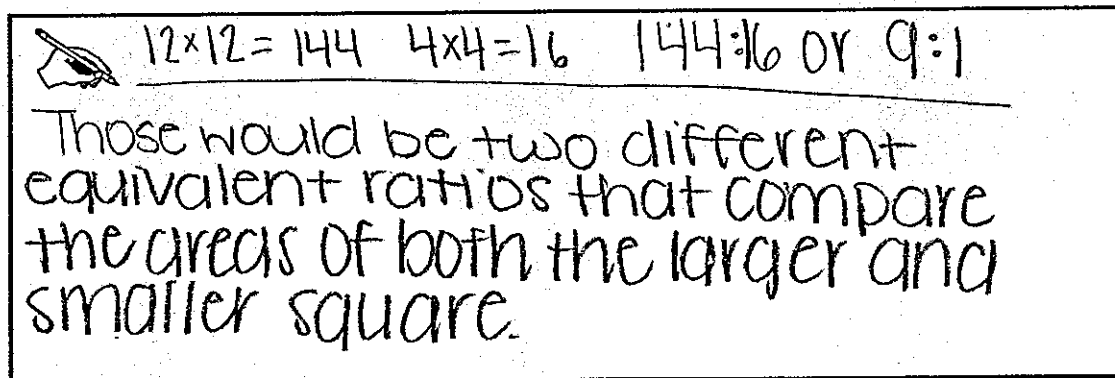 12×12=144 4×4=16 144:16 or 9:1
Those would be two different
equivalent ratios that compare
the areas of both the larger and
smaller square.